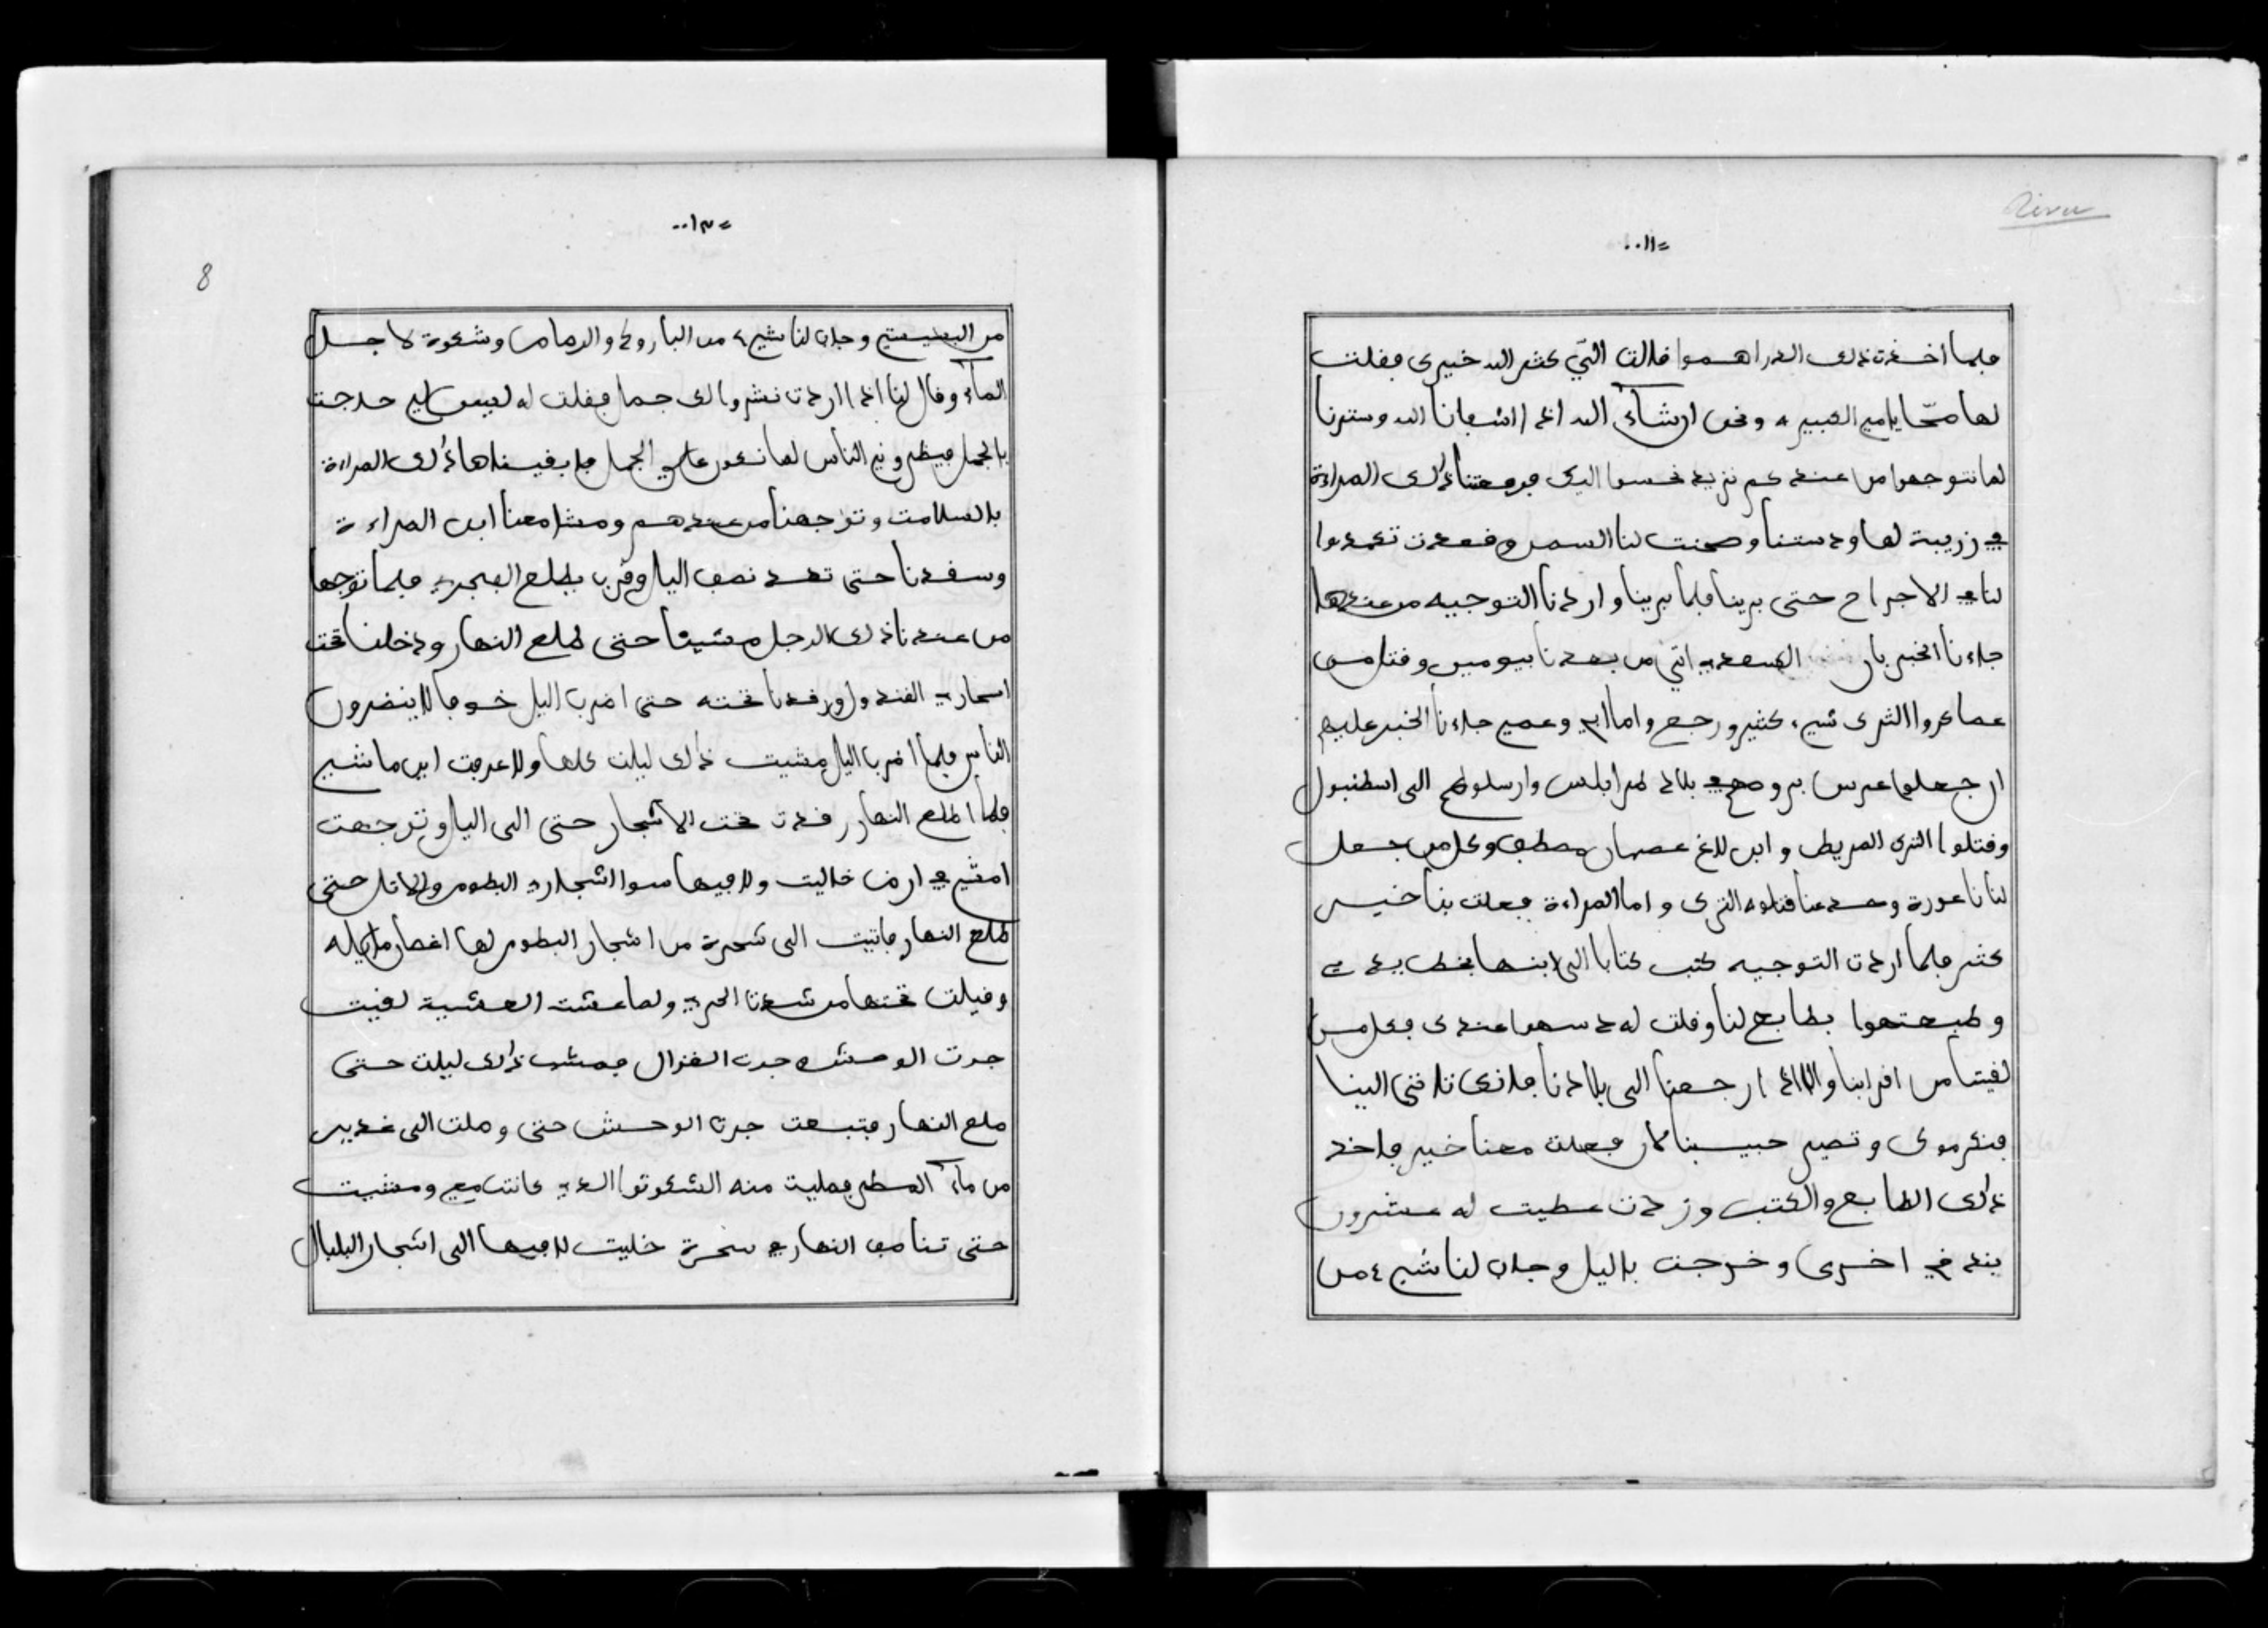 Rivu
٠٠١١=
فلما أخذت ذلك الدراهموا قالت التّي كثر الله خيرك فقلت
لها محّا يامي الكبيرة ونحن ان شآء الله اذا اشفانا الله وسترنا
لما نتوجهوا من عندكم نزيد نحسوا اليك فرفعتنا ذلك المراءة
في زريبة لها ودستنا وصحنت لنا السمن وقعدت تغمدوا
لنا في الاجراح حتى برينا فلما برينا واردنا التوجيه من عندها
جاءنا الخبر بان السعدي اتي من بعدنا بيومين وقتل من
عساكروا الترك شيء كثير ورجع واما ابي وعمي جاءنا الخبر عليهم
ان جعلوا عرس بروحهي بلاد طرابلس وارسلوهم الى اسطنبول
وقتلوا الترك المريض وابن لاغ عصمان مصطفى وكل من جعل
لنا ناعورة وحسد عنا قتلوه الترك واما المراءة فعلت بنا خيس
كثير فلما اردت التوجيه كتب كتابا الى ابنها بخط يدي
وطبعتهوا بطابع لنا وقلت له دسهوا عندك فكل من
لقيتنا من اقرابنا والا اذا رجعنا الى بلادنا فلازم تلافتى الينا
فنكرموك وتصير حبيبنا لان فعلت معنا خير فاخذ
ذلك الطابع والكتب وزدت عطيت له عشرون
بندقي اخرى وخرجت باليل وجاب لنا شيء من
٠٠١٢=
8
من البشيشي وجاب لنا شيء من البارود والرصاص وشكوة لاجل
المآء وقال لنا اذا اردت نشروا لك جمل فقلت له ليس لي حاجت
بالجمل فيظروني الناس لما نكون على الجمل فابقيناها ذلك المراءة
بالسلامت وتوجهنا من عندهم ومشا معنا ابن المراءة
وسقدنا حتى تعد نصف اليل وقرب يطلع الفجر فلما توجها
من عندنا ذلك الرجل مشينا حتى طلع النهار ودخلنا تحت
اسجاري القندول ورقدنا تحته حتى اضرب اليل خوفا لا ينضرون
الناس فلما اضرب اليل مشيت ذلك ليلت كلها ولا عرفت اين ماشي
فلما اطلع النهار رقدت تحت الاشجار حتى الى اليل وتوجهت
امشي في ارض خاليت ولا فيها سوا اشجاري البطوم والاتل حتى
طلع النهار فاتيت الى شجرة من اشجار البطوم لها اغصان مايله
وقيلت تحتها من شدت الحر ولما عشت العشية لقيت
جرت الوحش جرت الغزال فمشيت ذلك ليلت حتى
طلع النهار فتبعت جرت الوحش حتى وصلت الى غدير
من مآء المطر فمليت منه الشكوتوا الدي كانت معي ومشيت
حتى تناصف النهار في سحرة خليت لا فيها الى اشجار البلبال